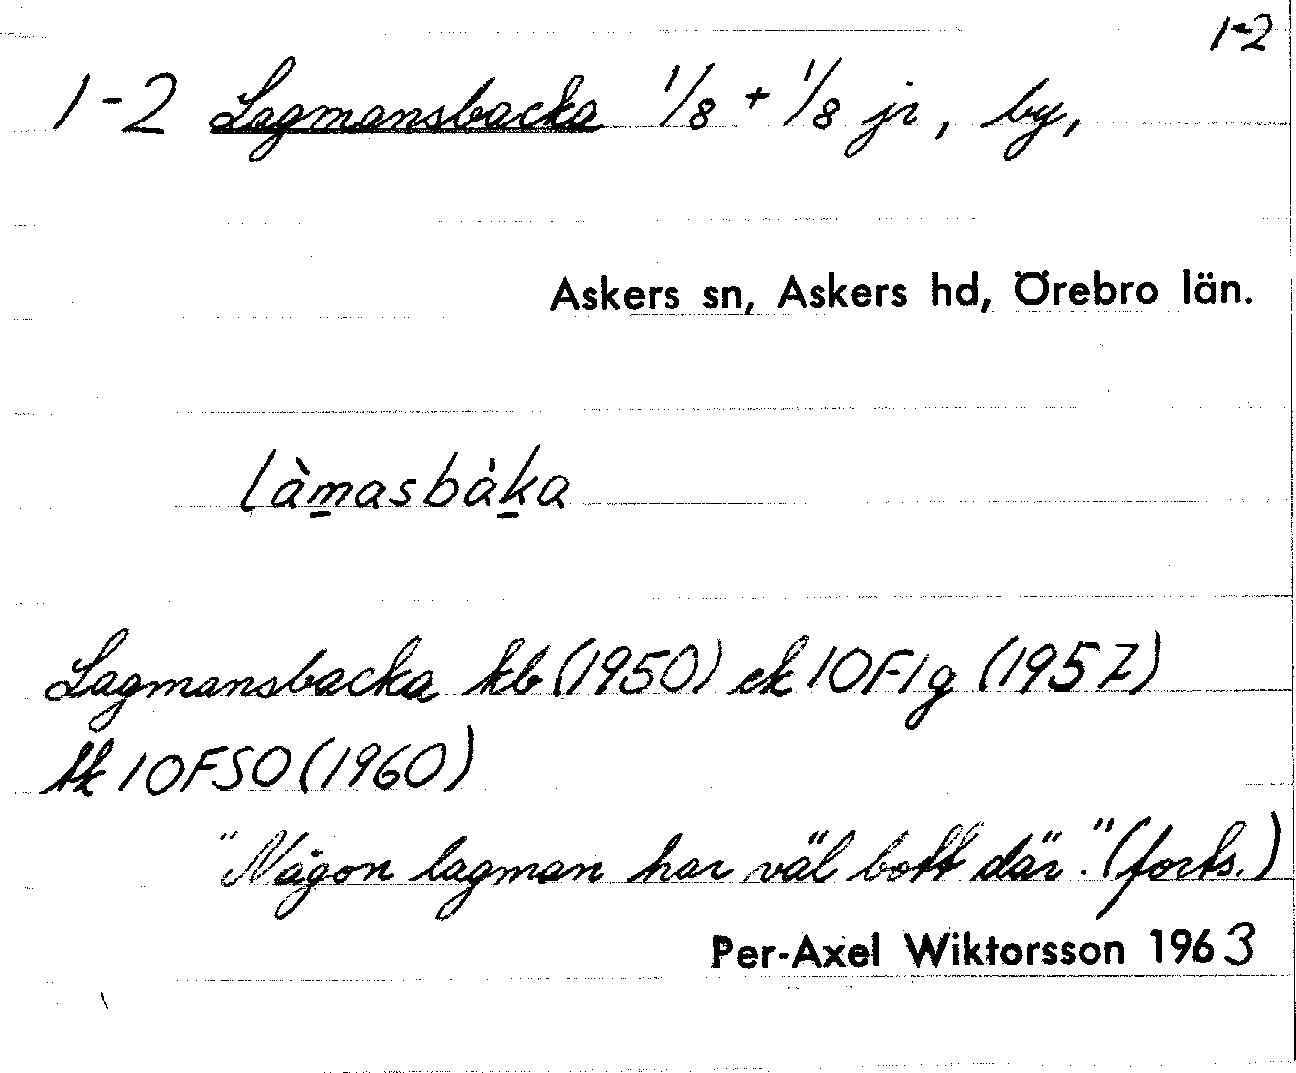 1-2
1-2 Lagmansbacka 1/8 + 1/8 jr, by,
Askers sn, Askers hd, Örebro län.
làmasbáka
Lagmansbacka kb (1950) ek 10F1g (1957)
tk 10FSO (1960)
"Någon lagman har väl bott där." (forts.)
Per-Axel Wiktorsson 1963